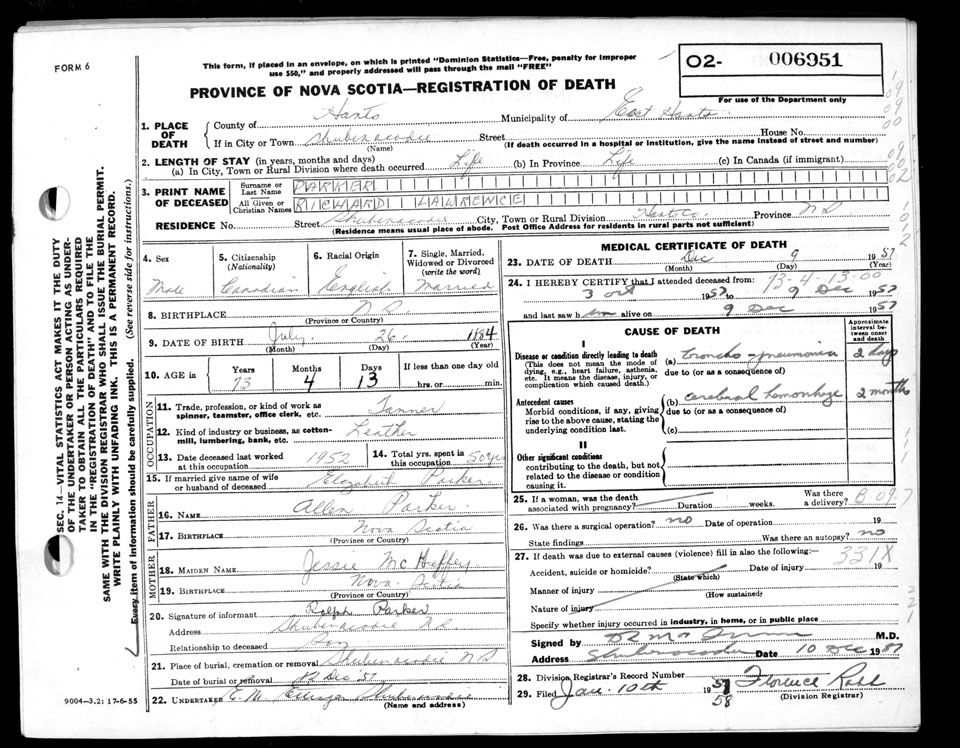 FORM 6
This form, if placed in an envelope, on which is printed "Dominion Statistics—Free, penalty for improper
use $50," and properly addressed will pass through the mail "FREE"
O2- 006951
For use of the Department only
PROVINCE OF NOVA SCOTIA—REGISTRATION OF DEATH
1. PLACE OF DEATH
County of Hants Municipality of East Hants
If in City or Town Shubenacadie Street House No.
(Name) (If death occurred in a hospital or institution, give the name instead of street and number)
2. LENGTH OF STAY (in years, months and days)
(a) In City, Town or Rural Division where death occurred Life (b) In Province Life (c) In Canada (if immigrant)
3. PRINT NAME OF DECEASED
Surname or Last Name PARKER
All Given or Christian Names RICHARD LAWRENCE
RESIDENCE No. Street Shubenacadie City, Town or Rural Division Hants Co. Province N S
(Residence means usual place of abode. Post Office Address for residents in rural parts not sufficient)
4. Sex Male
5. Citizenship (Nationality) Canadian
6. Racial Origin English
7. Single, Married, Widowed or Divorced (write the word) Married
8. BIRTHPLACE N.S.
(Province or Country)
9. DATE OF BIRTH July 26 1884
(Month) (Day) (Year)
10. AGE in Years 73 Months 4 Days 13 If less than one day old hrs. or min.
OCCUPATION
11. Trade, profession, or kind of work as spinner, teamster, office clerk, etc. Tanner
12. Kind of industry or business, as cotton-mill, lumbering, bank, etc. Leather
13. Date deceased last worked at this occupation 1952
14. Total yrs. spent in this occupation 50 yrs
15. If married give name of wife or husband of deceased Parker
FATHER
16. NAME Allen Parker
17. BIRTHPLACE Nova Scotia
(Province or Country)
MOTHER
18. MAIDEN NAME Jessie McHeffey
19. BIRTHPLACE Nova Scotia
(Province or Country)
20. Signature of informant Ralph Parker
Address Shubenacadie N S
Relationship to deceased Son
21. Place of burial, cremation or removal Shubenacadie N S
Date of burial or removal 12 Dec '57
22. UNDERTAKER E. M. Shubenacadie
(Name and address)
MEDICAL CERTIFICATE OF DEATH
23. DATE OF DEATH Dec 9 1957
(Month) (Day) (Year)
24. I HEREBY CERTIFY that I attended deceased from: 13-4-13-00
3 Oct 1957 to 9 Dec 1957
and last saw him alive on 9 Dec 1957
CAUSE OF DEATH
Approximate interval between onset and death
I
Disease or condition directly leading to death
(This does not mean the mode of dying, e.g., heart failure, asthenia, etc. It means the disease, injury, or complication which caused death.)
(a) broncho-pneumonia 2 days
due to (or as a consequence of)
Antecedent causes
Morbid conditions, if any, giving rise to the above cause, stating the underlying condition last.
(b) cerebral hemorrhage 2 months
due to (or as a consequence of)
(c)
II
Other significant conditions
contributing to the death, but not related to the disease or condition causing it.
25. If a woman, was the death associated with pregnancy? Duration weeks. Was there a delivery? B 09.7
26. Was there a surgical operation? no Date of operation 19
State findings Was there an autopsy? no
27. If death was due to external causes (violence) fill in also the following:— 331X
Accident, suicide or homicide? Date of injury 19
(State which)
Manner of injury
(How sustained)
Nature of injury
Specify whether injury occurred in industry, in home, or in public place
Signed by M.D.
Address Shubenacadie Date 10 Dec 1957
28. Division Registrar's Record Number
29. Filed Jan. 10th 1957 58 Florence
(Division Registrar)
SEC. 14—VITAL STATISTICS ACT MAKES IT THE DUTY
OF THE UNDERTAKER OR PERSON ACTING AS UNDER-
TAKER TO OBTAIN ALL THE PARTICULARS REQUIRED
IN THE "REGISTRATION OF DEATH" AND TO FILE THE
SAME WITH THE DIVISION REGISTRAR WHO SHALL ISSUE THE BURIAL PERMIT.
WRITE PLAINLY WITH UNFADING INK. THIS IS A PERMANENT RECORD.
Every item of information should be carefully supplied. (See reverse side for instructions.)
9004-3.2: 17-6-55